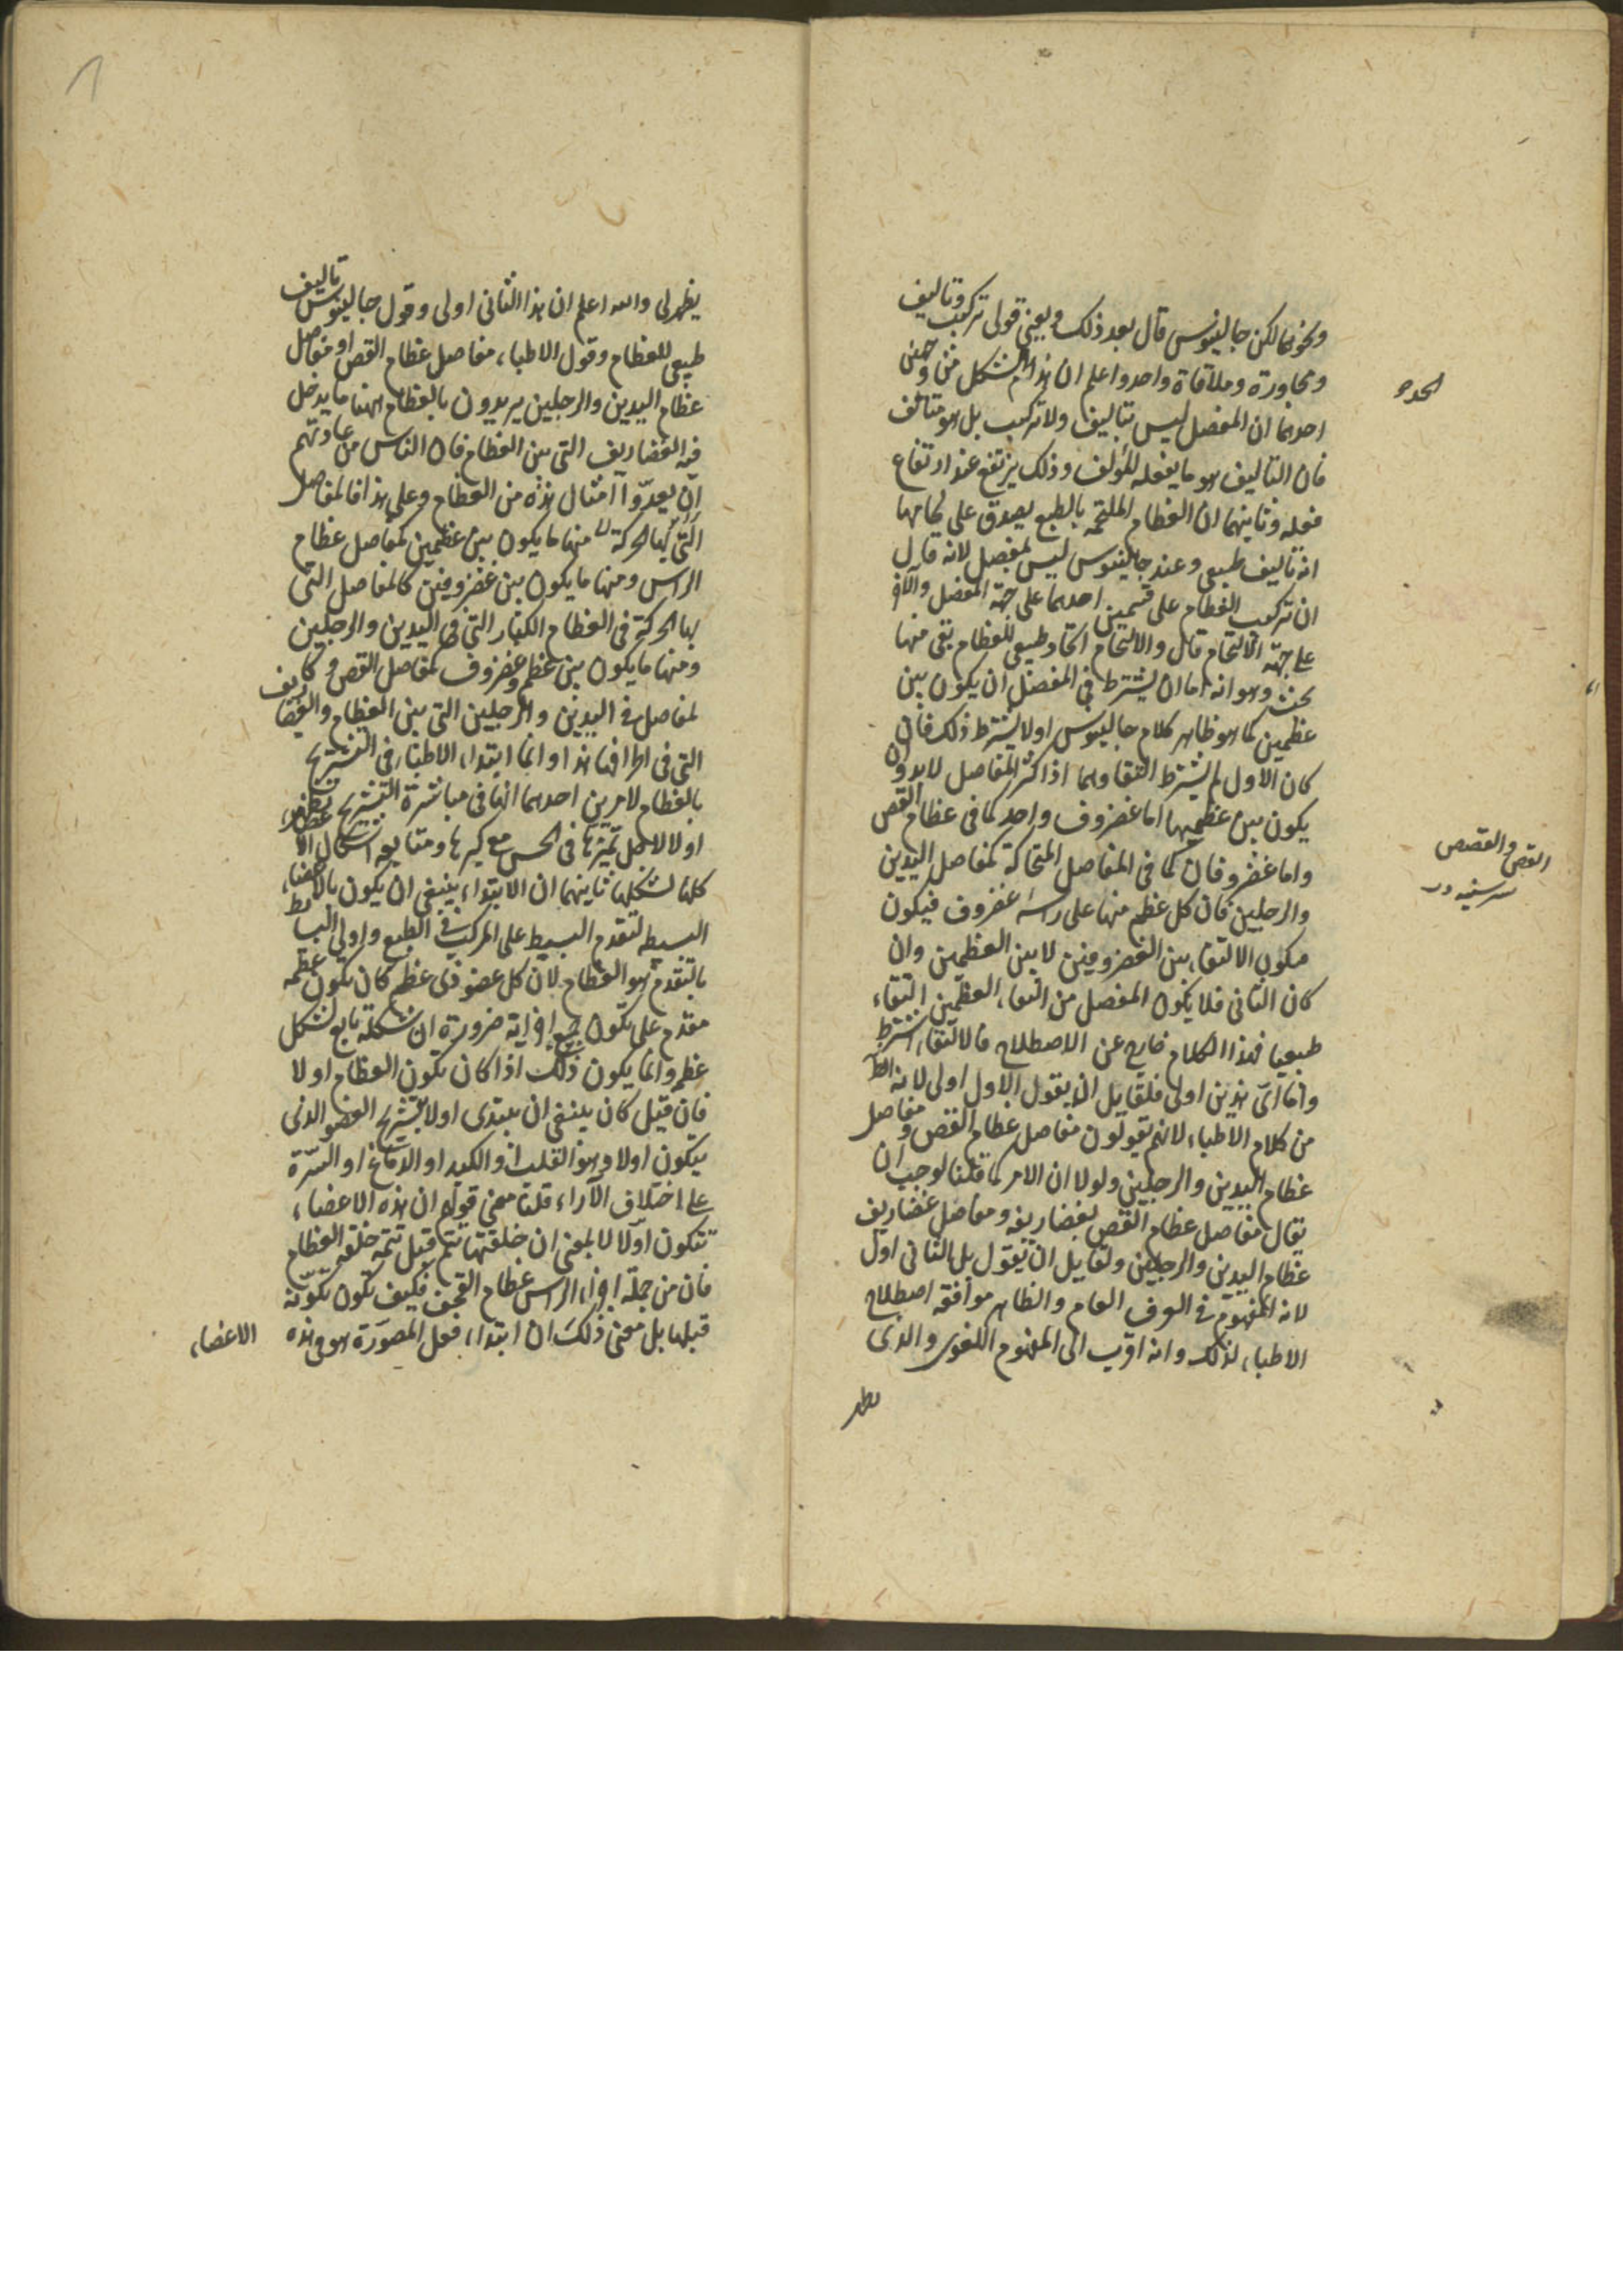 ونحوها لكن جالينوس قال بعد ذلك ويعنى قولى تركيب وتاليف
ومجاورة وملاقاة واحد واعلم ان هذا الرسم مشكل من وجهين
احدهما ان المفصل ليس بتاليف ولا تركيب بل هو متالف
فان التاليف هو ما يفعله المؤلف وذلك يرتفع عند ارتفاع
فعله وثانيهما ان العظام الملتحمة بالطبع يصدق على لحامها
انه تاليف طبيعى وعند جالينوس ليس بمفصل لانه قال
ان تركيب العظام على قسمين احدهما على جهة المفصل والآخر
على جهة الالتحام قال والالتحام اتحاد طبيعى للعظام بقى منها
بحث وهو انه اما ان يشترط فى المفصل ان يكون بين
عظمين كما هو ظاهر كلام جالينوس اولا يشترط ذلك فان
كان الاول لم يشترط التقاوهما اذ اكثر المفاصل لابد وان
يكون بين عظميها اما غضروف واحد كما فى عظام القص
واما غضروفان كما فى المفاصل المتحركة كمفاصل اليدين
والرجلين فان كل عظم منها على راسه غضروف فيكون
فيكون الالتقاء بين الغضروفين لا بين العظمين وان
كان الثانى فلا يكون المفصل من التقاء العظمين التقاء
طبيعيا فهذا الكلام خارج عن الاصطلاح فالالتقاء اشترط
واما اىّ هذين اولى فلقايل ان يقول الاول اولى لانه الظ
من كلام الاطباء لانهم يقولون مفاصل عظام القص ومفاصل
عظام اليدين والرجلين ولولا ان الامر كما قلنا لوجب ان
يقال مفاصل عظام القص بغضاريفه ومفاصل غضاريف
عظام اليدين والرجلين ولقايل ان يقول بل الثانى اولى
لانه المفهوم فى العرف العام والظاهر موافقة اصطلاح
الاطباء لذلك وانه اقرب الى المفهوم اللغوى والذى
يظهر
القص والقصص
سر سينه
يظهر لى والله اعلم ان هذا الثانى اولى وقول جالينوس تاليف
طبيعى للعظام وقول الاطباء مفاصل عظام القص او مفاصل
عظام اليدين والرجلين يريدون بالعظام ههنا ما يدخل
فيه الغضاريف التى بين العظام فان الناس من عادتهم
ان يعدّوا امثال هذه من العظام وعلى هذا فالمفاصل
التى بها الحركة منها ما يكون بين عظمين كمفاصل عظام
الراس ومنها ما يكون بين غضروفين كالمفاصل التى
بها الحركة فى العظام الكبار التى فى اليدين والرجلين
ومنها ما يكون بين عظم وغضروف كمفاصل القص و
لمفاصل فى اليدين والرجلين التى بين العظام والغضاريف
التى فى اطرافها هذا وانما ابتداء الاطباء فى التشريح
بالعظام لامرين احدهما انها فى مباشرة التشريح تظهر
اولا لاجل تميّزها فى الحس مع كبرها ومتابعة اشكال الاعضاء
كلها لشكلها ثانيهما ان الابتداء ينبغى ان يكون بالاعضاء
البسيطه لتقدم البسيط على المركب فى الطبع واولى البسايط
بالتقدم هو العظام لان كل عضو ذى عظم كان تكون عظمه
مقدم على تكون جميع اجزائه ضرورة ان شكله تابع لشكل
عظمه وانما يكون ذلك اذا كان تكون العظام اولا
فان قيل كان ينبغى ان يبتدى اولا بتشريح العضو الذى
يتكون اولا وهو القلب او الكبد او الدماغ او السرّة
على اختلاف الآراء قلنا معنى قولهم ان هذه الاعضاء
تتكون اولا لا بمعنى ان خلقتها تتم قبل تتمة خلقة العظام
فان من جملة اجزاء الراس عظام القحف فكيف تكون تكوّنه
قبلها بل معنى ذلك ان ابتداء فعل المصوّرة هو فى هذه
الاعضاء